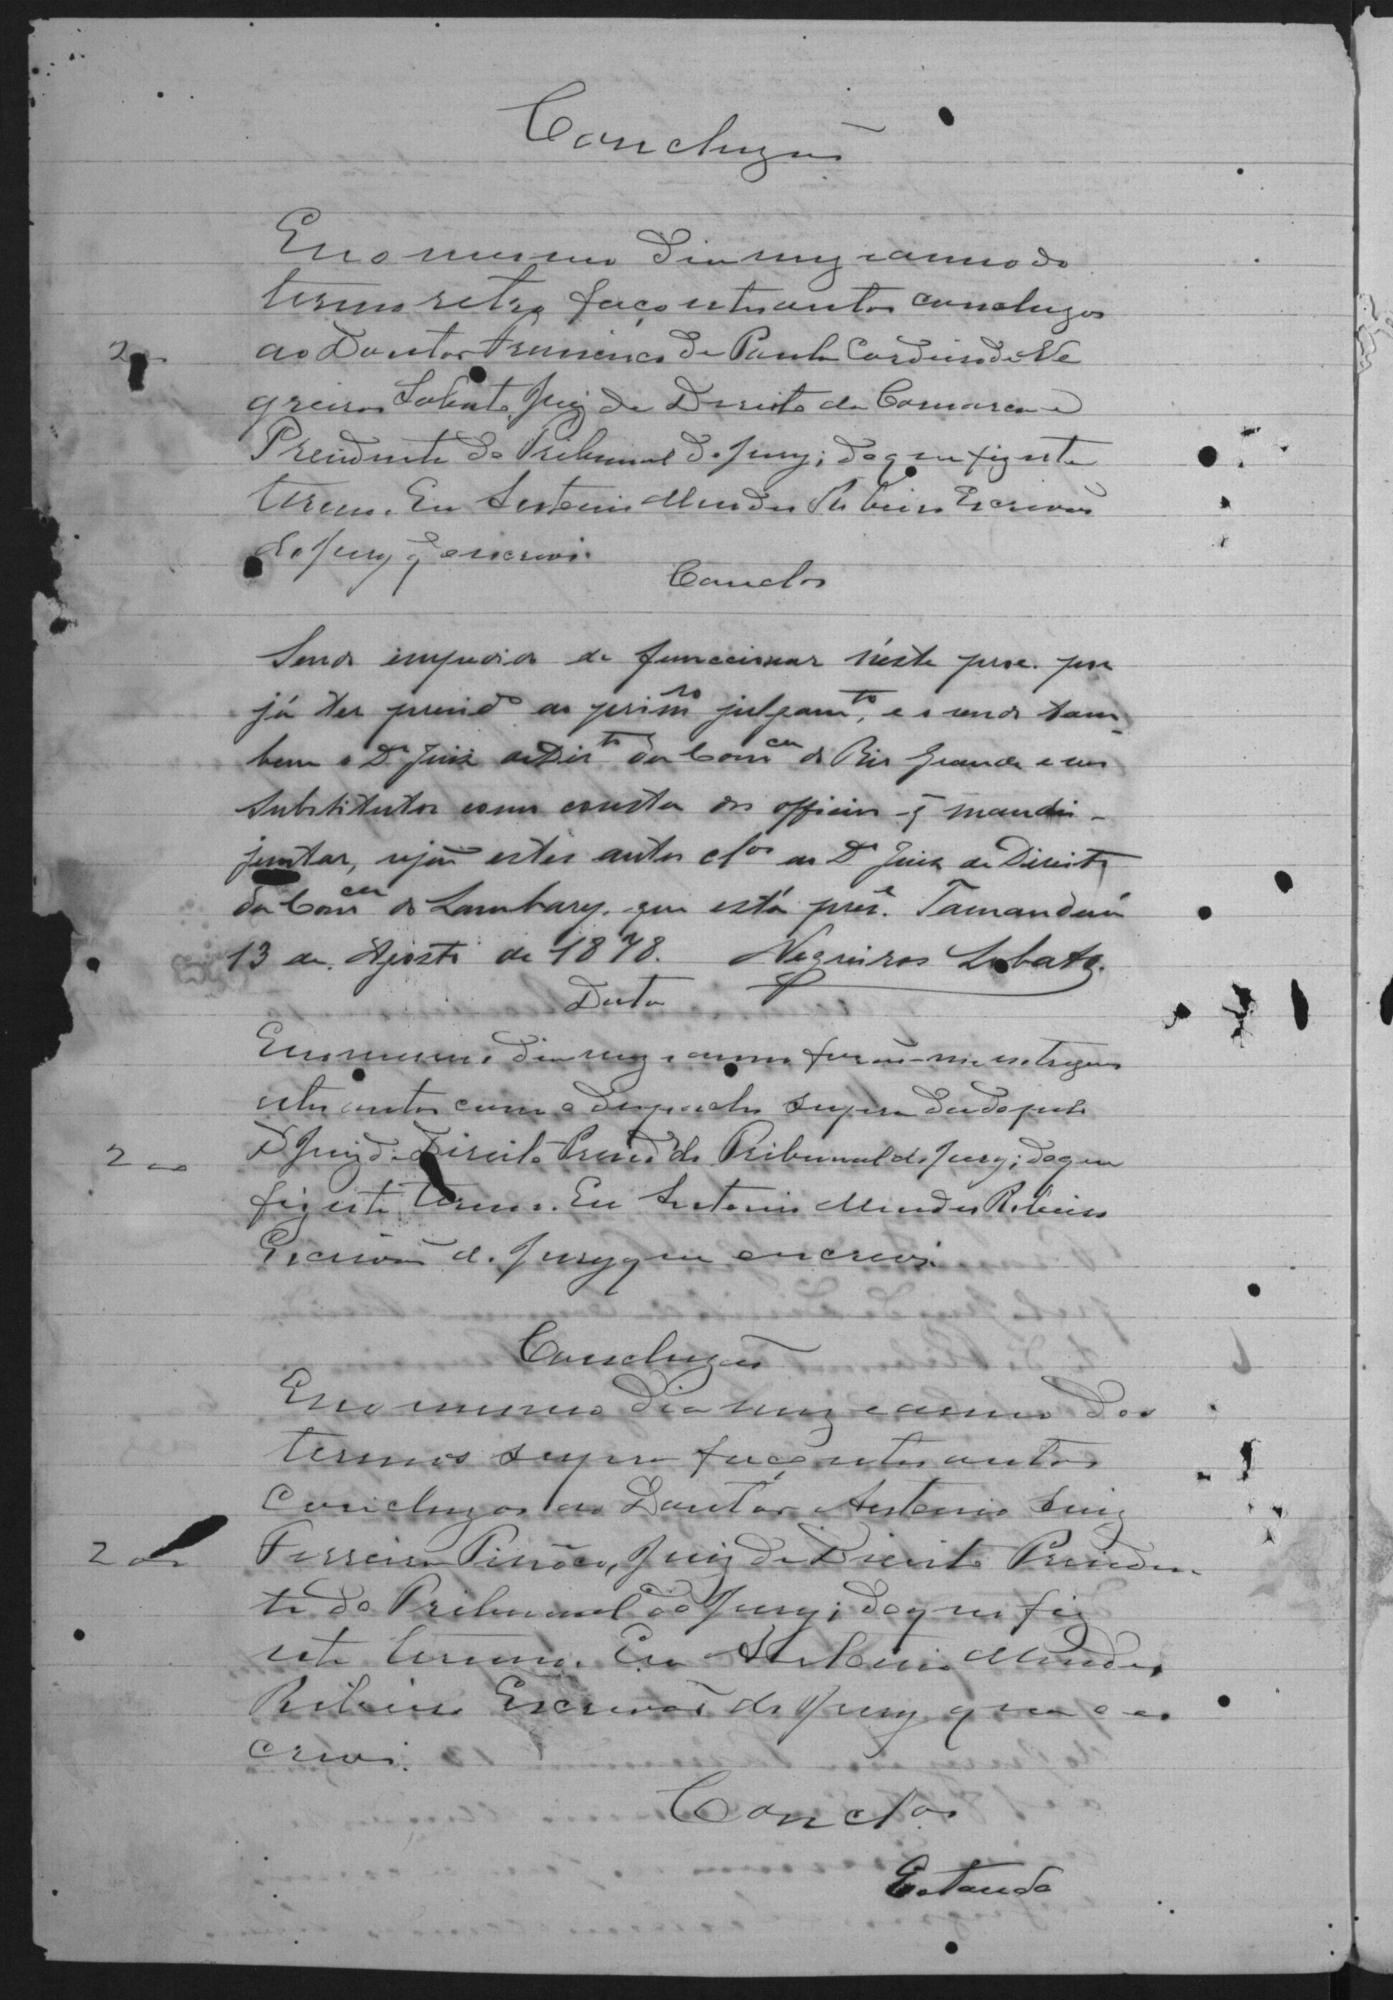 Concluzão
Eno mesmo dia mez e anno do
termo retro faço estes autos concluzos
200
ao Doutor Francisco de Paula Cordeiro de Ne
greiros Lobato Juiz de Direito da Comarca e
Presidente do Tribunal do Jury; do que fiz este
termo. Eu Antonio Mendes Ribeiro Escrivão
do Jury q̃ escrevi.
Conclos
Sendo impedido de funccionar n'este proc. por
já ter presid.º ao prim.ro julgam.to, e o sendo tam-
bem o Dr Juiz de Dir.to da Com.ca do Rio Grande e seus
substitutos como consta dos officios q̃ mandei
juntar, sejão estes autos cl.os ao Dr Juiz de Direito
da Com.ca do Lambary, que está pres.e Tamanduá
13 de Agosto de 1878. Negreiros Lobato.
Data
Eno mesmo dia mez e anno forão-me entregues
estes autos com o despacho supra dado pelo
200
Dr Juiz de Direito Presid.e do Tribunal do Jury; do que
fiz este termo. Eu Antonio Mendes Ribeiro
Escrivão do Jury que escrevi.
Concluzão
Eno mesmo dia mez e anno dos
termos supra faço estes autos
Concluzos ao Doutor Antonio Luiz
200
Ferreira Tinôco, Juiz de Direito Presiden
te do Tribunal do Jury; do que fiz
este termo. Eu Antonio Mendes
Ribeiro Escrivão do Jury que o es
crevi.
Conclos
Estando